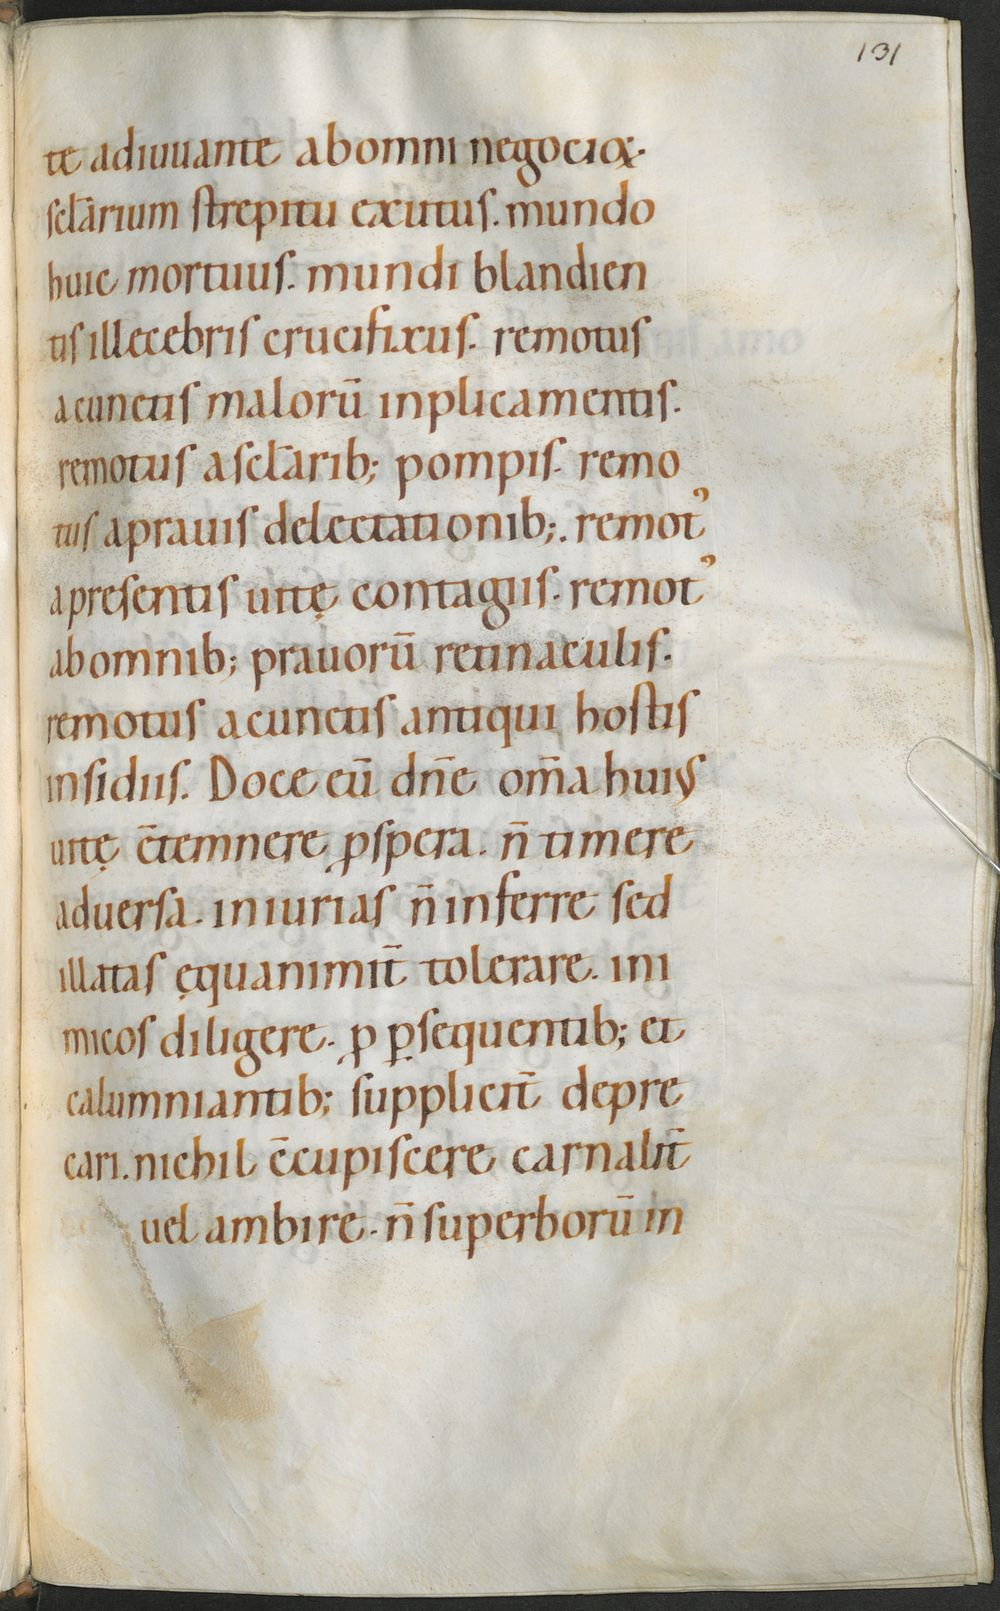 131
te adiuuante ab omni negocioꝝ.
sclārium strepitu exutus. mundo
huic mortuus. mundi blandien
tis illecebris crucifixus. remotus
a cunctis malorū inplicamentis.
remotus a sclārib; pompis. remo
tus a prauis delectationib;. remotꝰ
a presentis uitę contagiis. remotꝰ
ab omnib; prauorū retinaculis.
remotus a cunctis antiqui hostis
insidiis. Doce eū dn̄e om̄a huiꝰ
uitę c̄temnere ꝓspera. n̄ timere
aduersa. iniurias n̄ inferre sed
illatas ęquanimit̄ tolerare. ini
micos diligere. ꝓ ꝑsequentib; et
calumniantib; supplicit̄ depre
cari. nichil c̄cupiscere carnalit̄
uel ambire. n̄ superborū in